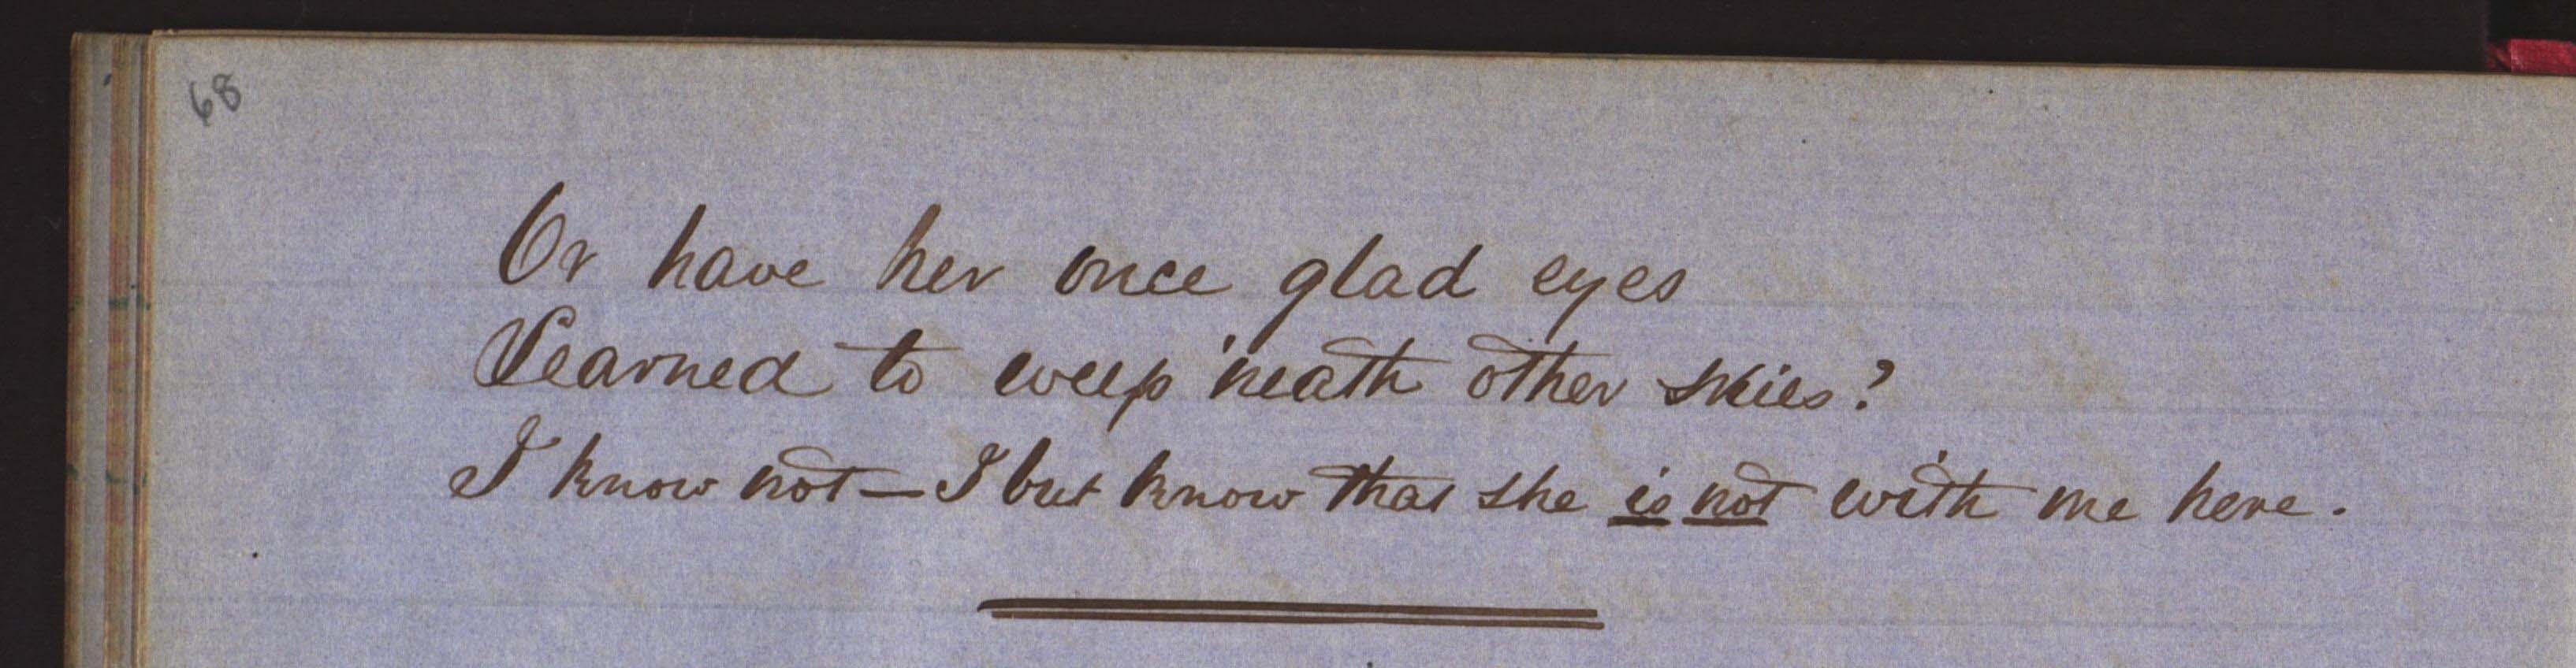 68
Or have her once glad eyes
Learned to weep 'neath other skies?
I know not — I but know that she is not with me here.